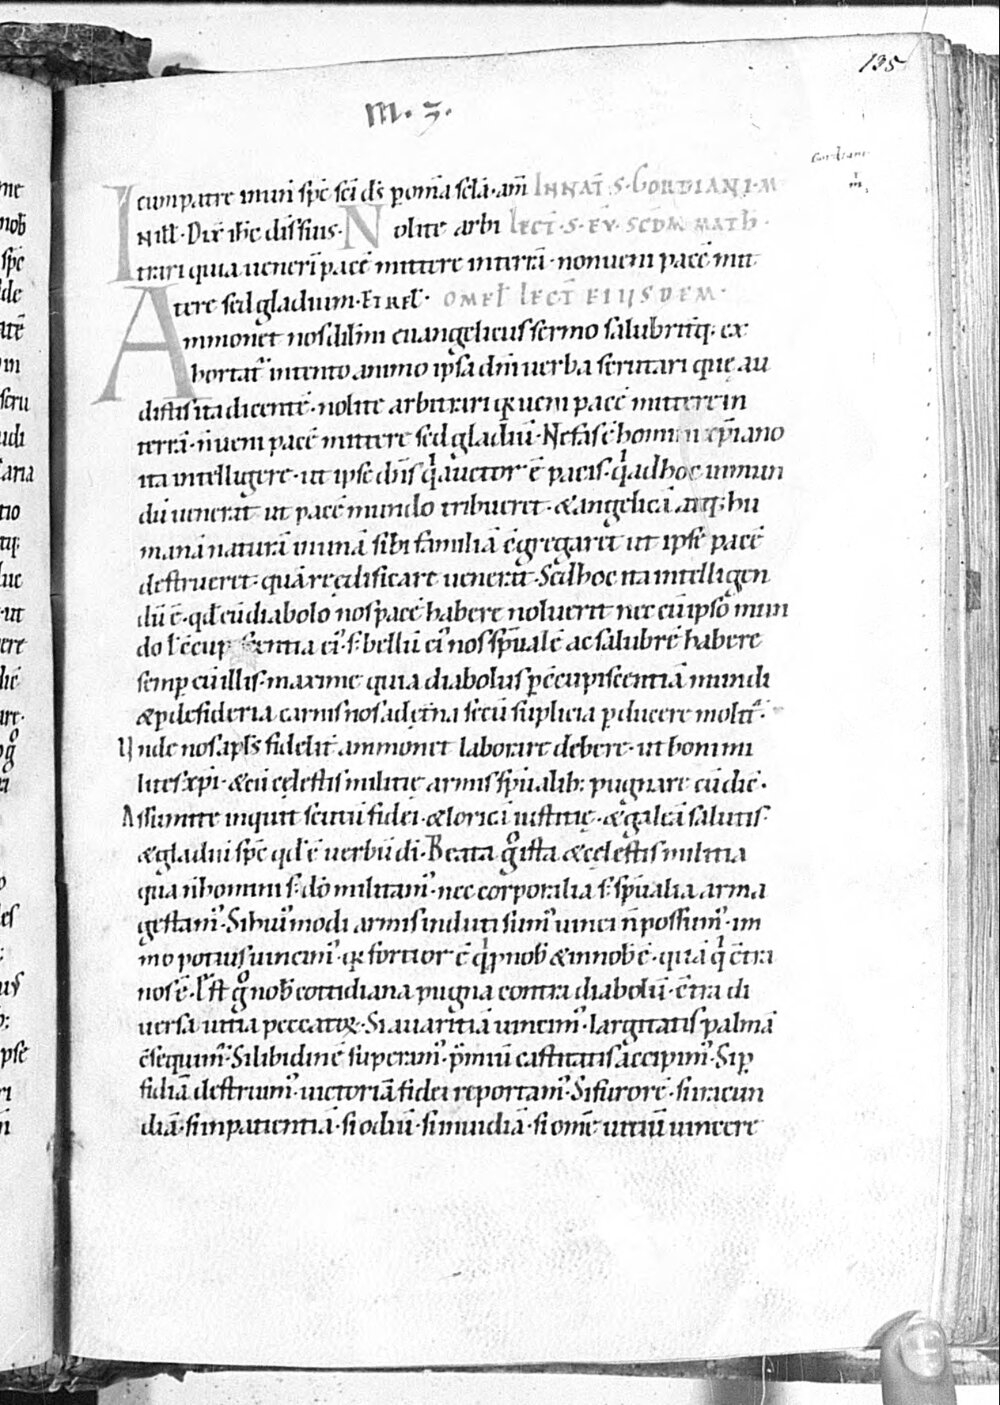 135
m. 7.
Gordiani
m.
cum patre in uni spc̄ sci ds̄ p om̄a sclā · am̄ IN NAT̄ S · GORDIANI · M
IN ILL̄ · Dix̄ ihc̄ disc̄ suis · Nolite arbi LECT̄ · S · EV̄ · SCD̄M MATH̄ ·
trari quia uenerī pacē mittere in terrā · non ueni pacē mit
tere sed gladium · ET REL̄ · OMEL̄ LECT̄ EIUSDEM ·
Ammonet nos dil̄mi euangelicus sermo salubritq; ex
hortat̄ intento animo ipsa dn̄i uerba scrutari quę au
distis ita dicentē · nolite arbitrari qr̄ ueni pacē mittere in
terrā · n̄ ueni pacē mittere sed gladiū · Nefas ē homini xp̄iano
ita intelligere · ut ipse dn̄s q̄ auctor ē pacis · q̄ ad hoc in mun
dū uenerat ut pacē mundo tribueret · & angelicā atq; hu
manā naturā in unā sibi familiā c̄gregaret ut ipse pacē
destrueret · quā reędificare uenerat · Sed hoc ita intelligen
dū ē · qd̄ cū diabolo nos pacē habere noluerit nec cū ipso mun
do l̄ ei · s; bellū ei nos sp̄ualē ac salubrē habere
semp cū illis · maxime quia diabolus p c̄cupiscentiā mundi
& p desideria carnis nos ad ęt̄na secū suplicia pducere molit̄ ·
Unde nos apl̄s fidelit̄ ammonet laborare debere · ut boni mi
lites xp̄i · & cū cęlestis militię armis sp̄ualib; pugnare cū dic̄ ·
Assumite inquit scutū fidei · & loricā iustitię · & galeā salutis ·
& gladiū sp̄c qd̄ ē uerbū di · Beata ḡ ista & cęlestis militia
qua n̄ homini s; dō militam̄ · nec corporalia s; sp̄ualia arma
gestam̄ · Si hui' modi armis induti sum' uinci n̄ possum' · im
mo potius uincim' · qr̄ fortior ē q̄ p nob̄ & in nob̄ ē · quā q̄ c̄tra
nos ē · Est ḡ nob̄ cottidiana pugna contra diabolū · c̄tra di
uersa uitia peccatoꝝ · Si auaritiā uincim' · largitatis palmā
c̄sequim̄ · Si libidinē superam' · p̄miū castitatis accipim' · Si p
fidiā destruim' · uictoriā fidei reportam' · Si furorē · si iracun
diā · si inpatientiā · si odiū · si inuidiā · si om̄e uitiū uincere